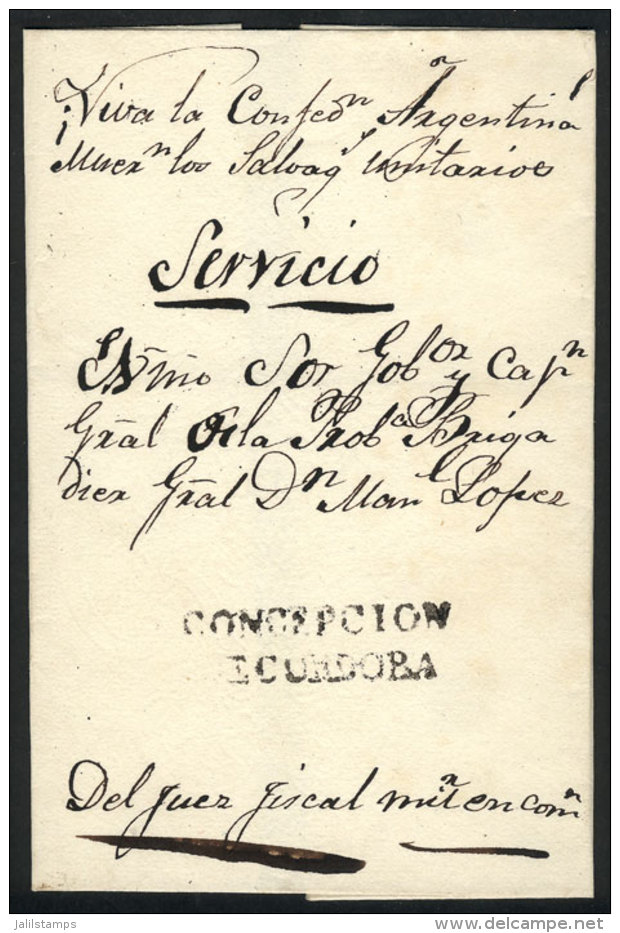 ¡Viva la Confedn Argentina
¡Muern los Salvags Unitarios
Servicio
Exmo Sor Gobor y Capn
Gral de la Proba Briga
dier Gral Dn Manl Lopez
CONCEPCION
E CORDOBA
Del Juez fiscal milr en comn
jalilstamps
www.delcampe.net